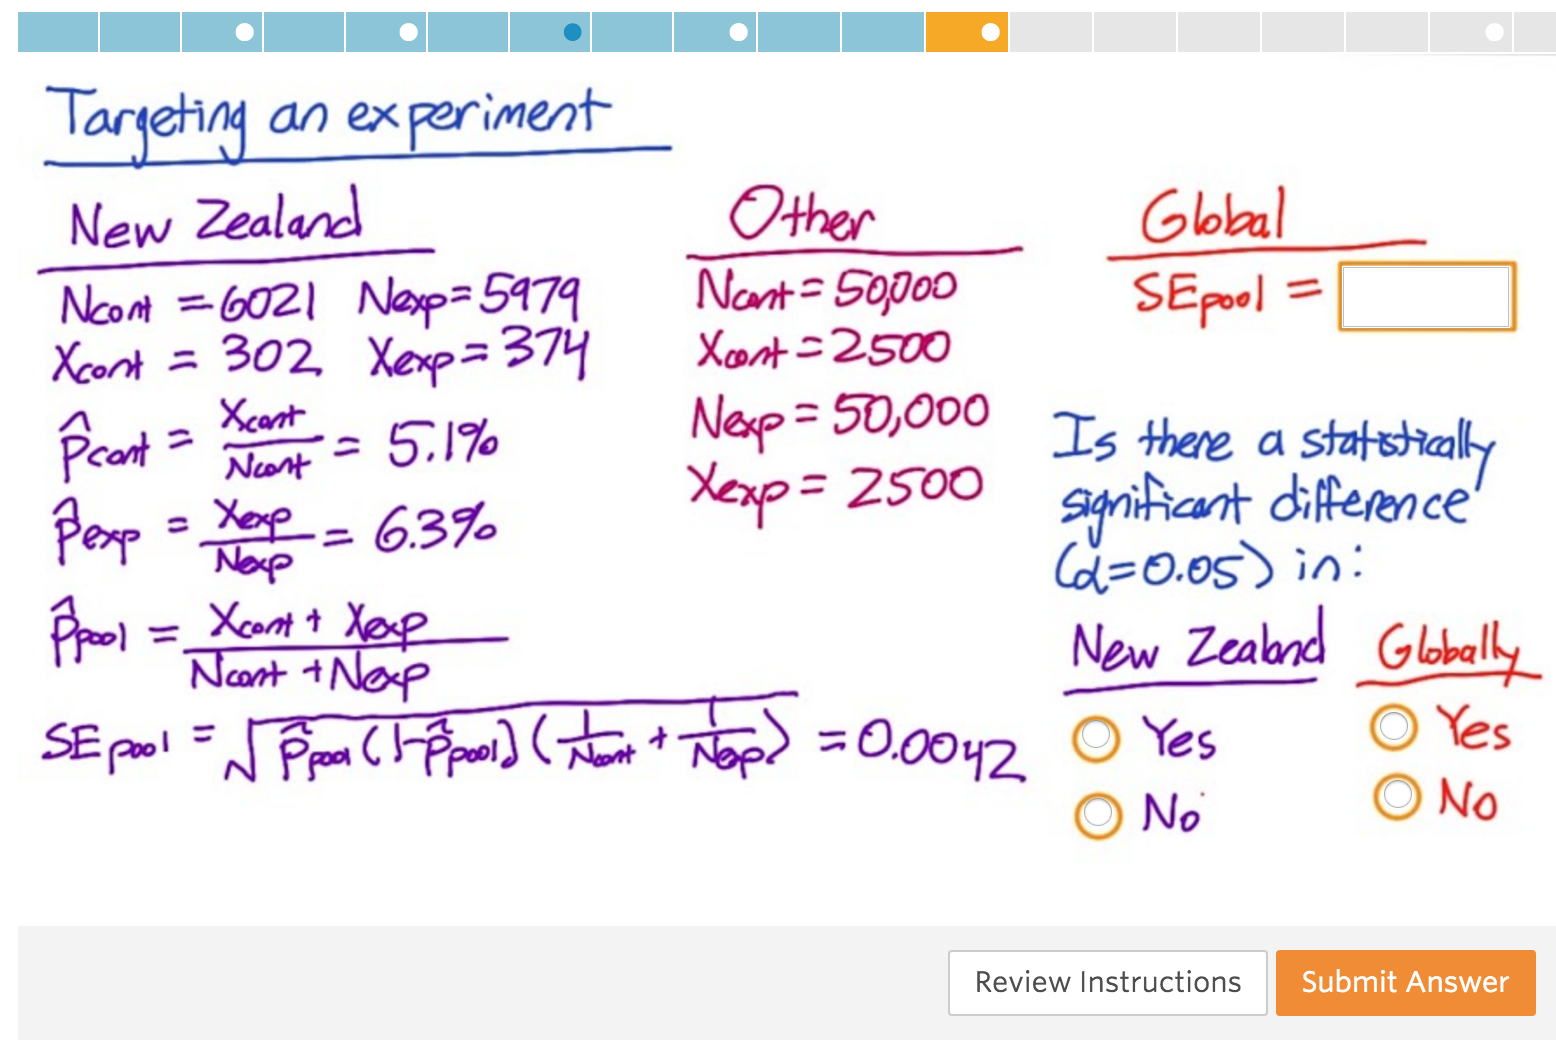 Targeting an experiment
New Zealand
Ncont = 6021 Nexp = 5979
Xcont = 302 Xexp = 374
p̂cont = Xcont / Ncont = 5.1%
p̂exp = Xexp / Nexp = 6.3%
p̂pool = Xcont + Xexp / Ncont + Nexp
SEpool = √p̂pool(1-p̂pool)(1/Ncont + 1/Nexp) = 0.0042
Other
Ncont = 50,000
Xcont = 2500
Nexp = 50,000
Xexp = 2500
Global
SEpool =
Is there a statistically
significant difference
(α=0.05) in:
New Zealand Globally
Yes Yes
No No
Review Instructions Submit Answer